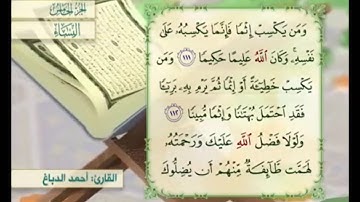 الجزء الخامس
النساء
وَمَن يَكْسِبْ إِثْمًا فَإِنَّمَا يَكْسِبُهُۥ عَلَىٰ
نَفْسِهِۦ ۚ وَكَانَ ٱللَّهُ عَلِيمًا حَكِيمًا ١١١ وَمَن
يَكْسِبْ خَطِيٓـَٔةً أَوْ إِثْمًا ثُمَّ يَرْمِ بِهِۦ بَرِيٓـًٔا
فَقَدِ ٱحْتَمَلَ بُهْتَـٰنًا وَإِثْمًا مُّبِينًا ١١٢
وَلَوْلَا فَضْلُ ٱللَّهِ عَلَيْكَ وَرَحْمَتُهُۥ
لَهَمَّت طَّآئِفَةٌ مِّنْهُمْ أَن يُضِلُّوكَ
القارئ: أحمد الدباغ